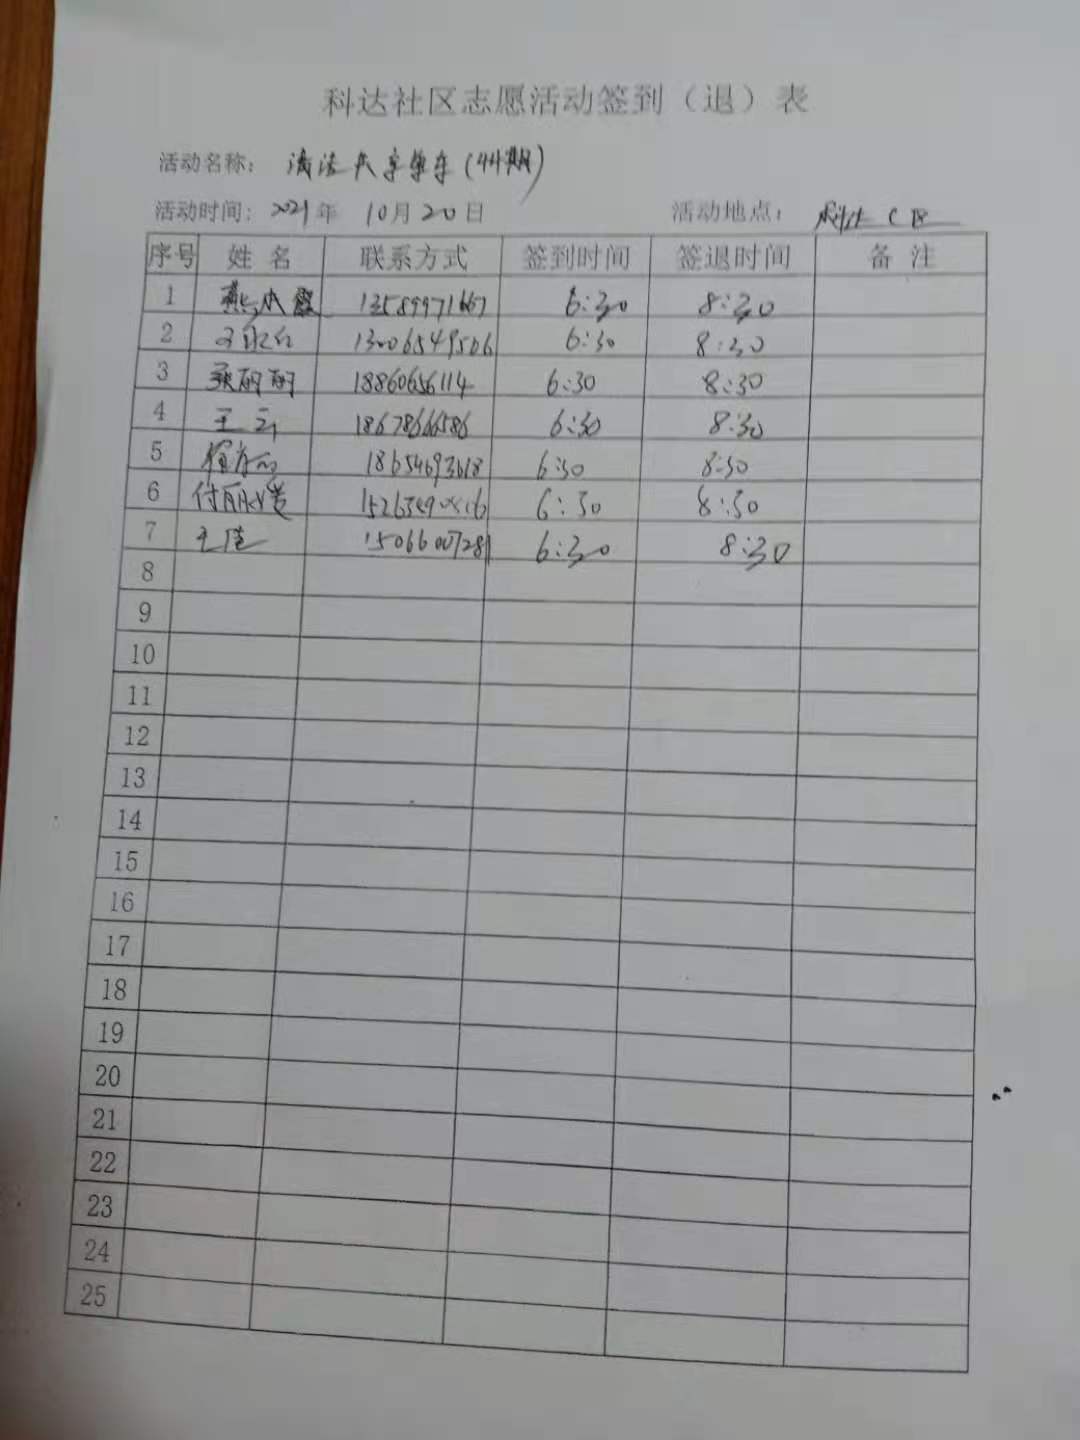 科达社区志愿活动签到（退）表
活动名称： 清洁共享单车(44期)
活动时间：2021年 10月20日 活动地点： 科达C区
序号 姓名 联系方式 签到时间 签退时间 备注
1 燕水霞 13589971667 6:30 8:30
2 13006549506 6:30 8:30
3 张丽丽 18860656114 6:30 8:30
4 王云 18678666586 6:30 8:30
5 18654693618 6:30 8:30
6 付丽媛 6:30 8:30
7 王佳 15066007281 6:30 8:30
8
9
10
11
12
13
14
15
16
17
18
19
20
21
22
23
24
25